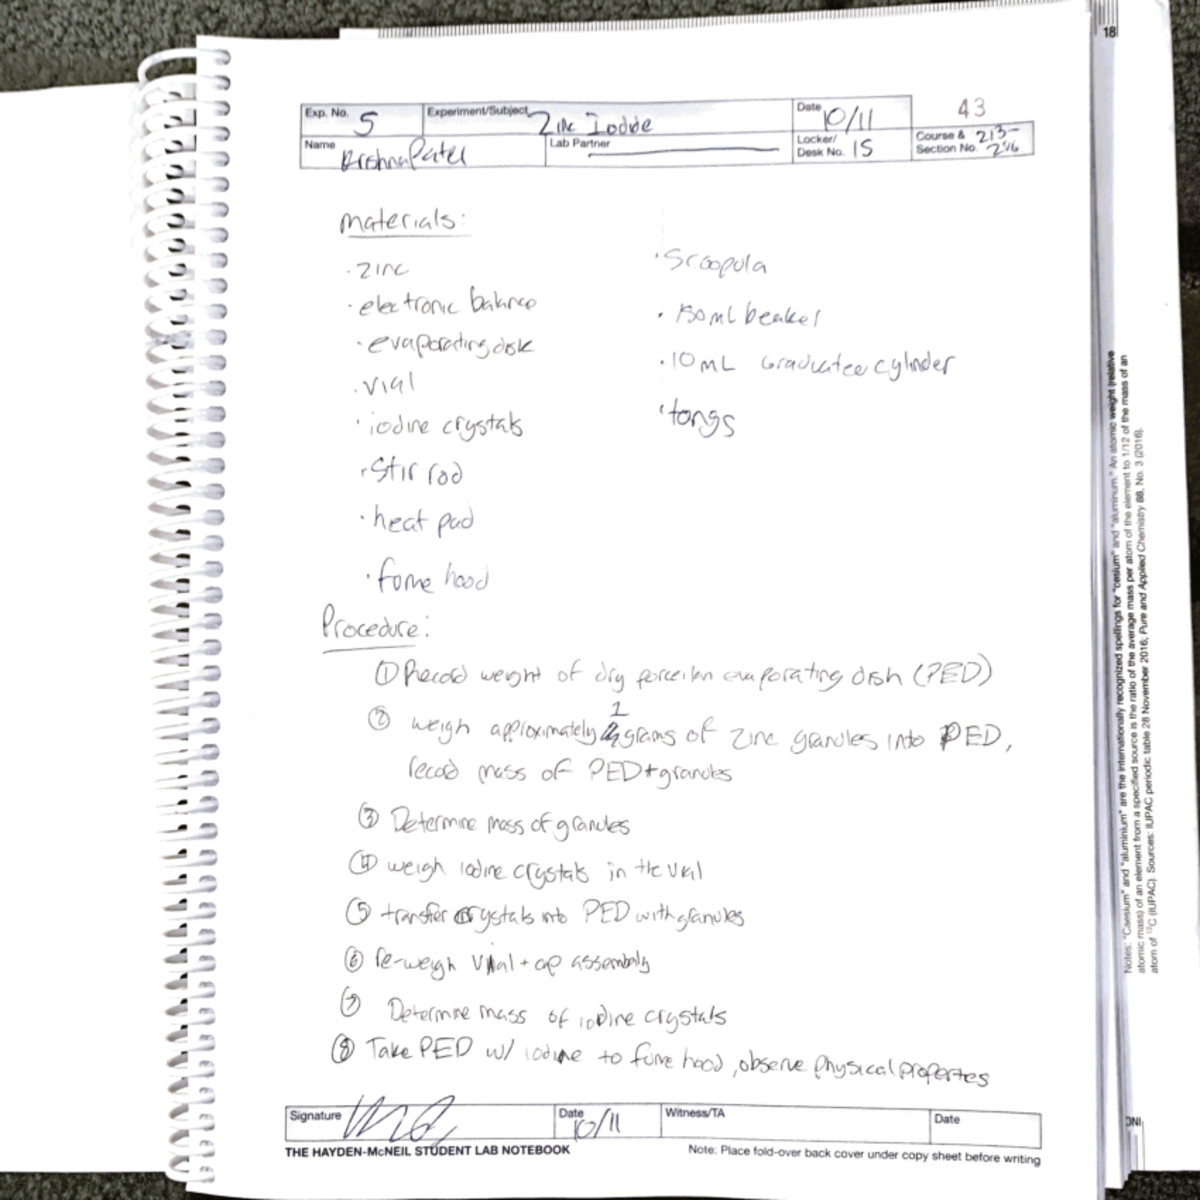 18
Exp. No. 5
Experiment/Subject Zinc Iodide
Date 10/11
43
Name Krishna Patel
Lab Partner
Locker/
Desk No. 15
Course & 213-
Section No. 246
Materials:
· zinc
· electronic balance
· evaporating disk
· vial
· iodine crystals
· Stir rod
· heat pad
· fume hood
· Scoopula
· 150 mL beaker
· 10 mL Graduated cylinder
· tongs
Procedure:
① Record weight of dry porcelan evaporating dish (PED)
② weigh approximately 1 grams of zinc granules into PED,
record mass of PED + granules
③ Determine mass of granules
④ weigh iodine crystals in the vial
⑤ transfer crystals into PED with granules
⑥ re-weigh vial + cap assembly
⑦ Determine mass of iodine crystals
⑧ Take PED w/ iodine to fume hood, observe physical properties
Signature
Date 10/11
Witness/TA
Date
THE HAYDEN-McNEIL STUDENT LAB NOTEBOOK
Note: Place fold-over back cover under copy sheet before writing
Notes: "Caesium" and "aluminium" are the internationally recognized spellings for "cesium" and "aluminum." An atomic weight (relative
atomic mass) of an element from a specified source is the ratio of the average mass per atom of the element to 1/12 of the mass of an
atom of ¹²C (IUPAC). Sources: IUPAC periodic table 28 November 2016; Pure and Applied Chemistry 88, No. 3 (2016).